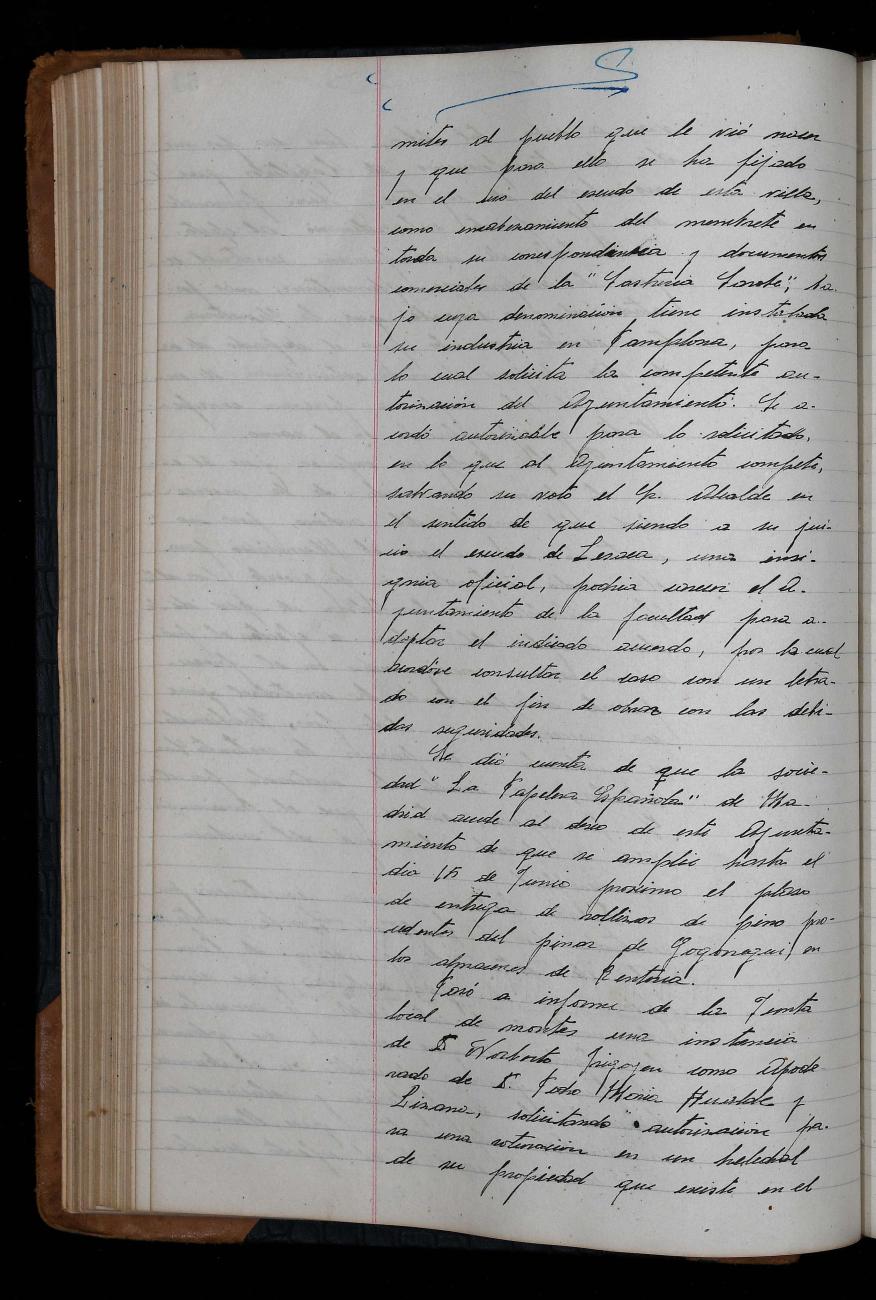 mites al pueblo que le vió nacer
y que para ello se ha fijado
en el uso del escudo de esta villa,
como encabezamiento del membrete en
toda su correspondencia y documentos
comerciales de la "Sastreria Sarobe", ba-
jo cuya denominación tiene instalada
su industria en Pamplona, para
lo cual solicita la competente au-
torización del Ayuntamiento. Se a-
cordó autorizable para lo solicitado,
en lo que al Ayuntamiento compete,
salvando su voto el Sr. Alcalde en
el sentido de que siendo a su jui-
cio el escudo de Lesaca, una insi-
gnia oficial, podria carecer el A-
yuntamiento de la facultad para a-
doptar el indicado acuerdo, por lo cual
acordóse consultar el caso con un letra-
do con el fin de obrar con las debi-
das seguridades.
Se dió cuenta de que la socie-
dad "La Papelera Española" de Ma-
drid accede al deseo de este Ayunta-
miento de que se amplie hasta el
dia 15 de Junio proximo el plazo
de entrega de rollizos de pino pro-
cedentes del pinar de en
los almacenes de Renteria.
Pasó a informe de la Junta
local de montes una instancia
de D. Norberto Irigoyen como Apode
rado de D. Pedro Maria y
solicitando autorización pa-
ra una roturación en un helechal
de su propiedad que existe en el